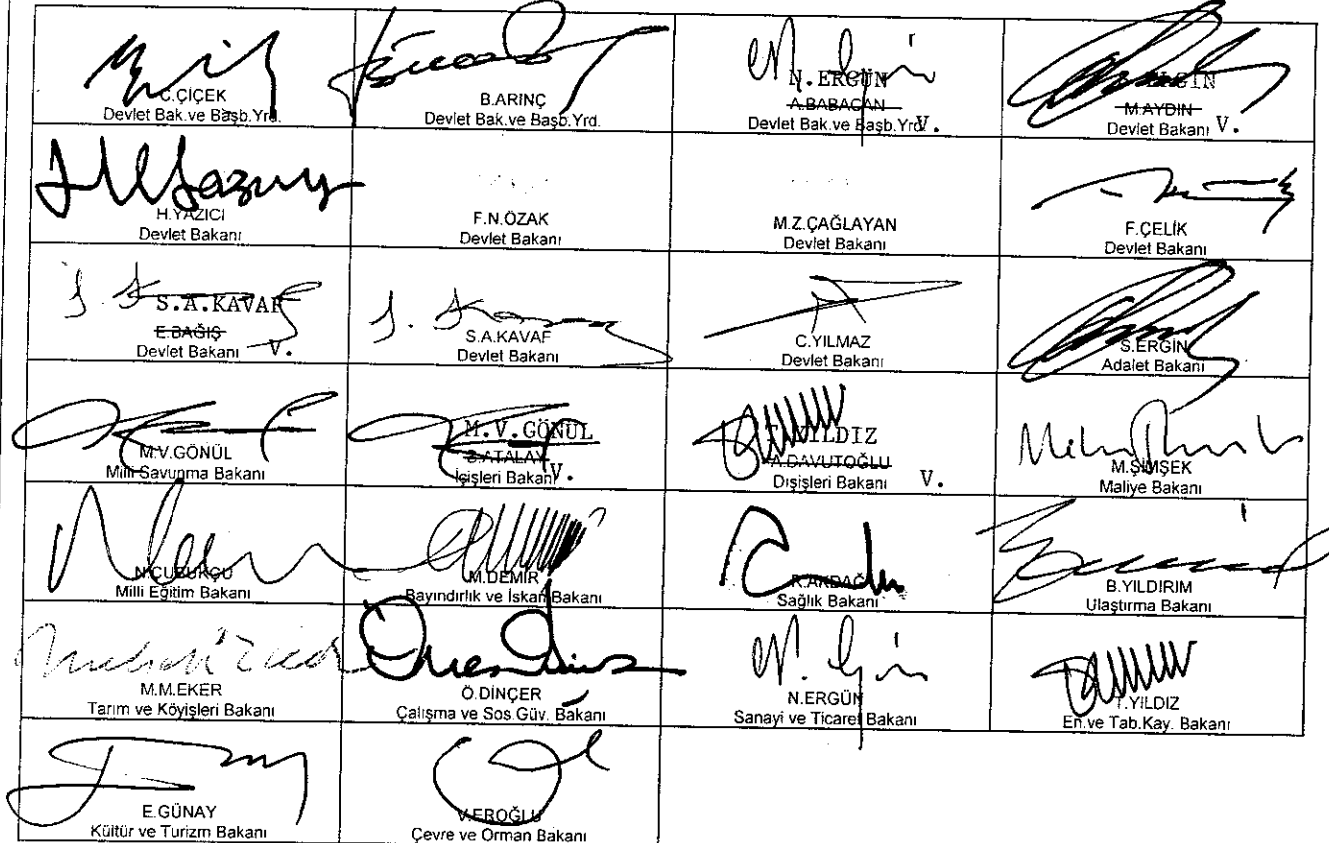 C.ÇİÇEK
Devlet Bak.ve Başb.Yrd.
B.ARINÇ
Devlet Bak.ve Başb.Yrd.
N.ERGÜN
A.BABACAN
Devlet Bak.ve Başb.Yrd. V.
S.ERGİN
M.AYDIN
Devlet Bakanı V.
H.YAZICI
Devlet Bakanı
F.N.ÖZAK
Devlet Bakanı
M.Z.ÇAĞLAYAN
Devlet Bakanı
F.ÇELİK
Devlet Bakanı
S.A.KAVAF
E.BAĞIŞ
Devlet Bakanı V.
S.A.KAVAF
Devlet Bakanı
C.YILMAZ
Devlet Bakanı
S.ERGİN
Adalet Bakanı
M.V.GÖNÜL
Milli Savunma Bakanı
M.V.GÖNÜL
B.ATALAY
İçişleri Bakanı V.
T.YILDIZ
A.DAVUTOĞLU
Dışişleri Bakanı V.
M.ŞİMŞEK
Maliye Bakanı
N.ÇUBUKÇU
Milli Eğitim Bakanı
M.DEMİR
Bayındırlık ve İskan Bakanı
R.AKDAĞ
Sağlık Bakanı
B.YILDIRIM
Ulaştırma Bakanı
M.M.EKER
Tarım ve Köyişleri Bakanı
Ö.DİNÇER
Çalışma ve Sos.Güv. Bakanı
N.ERGÜN
Sanayi ve Ticaret Bakanı
T.YILDIZ
En.ve Tab.Kay. Bakanı
E.GÜNAY
Kültür ve Turizm Bakanı
V.EROĞLU
Çevre ve Orman Bakanı